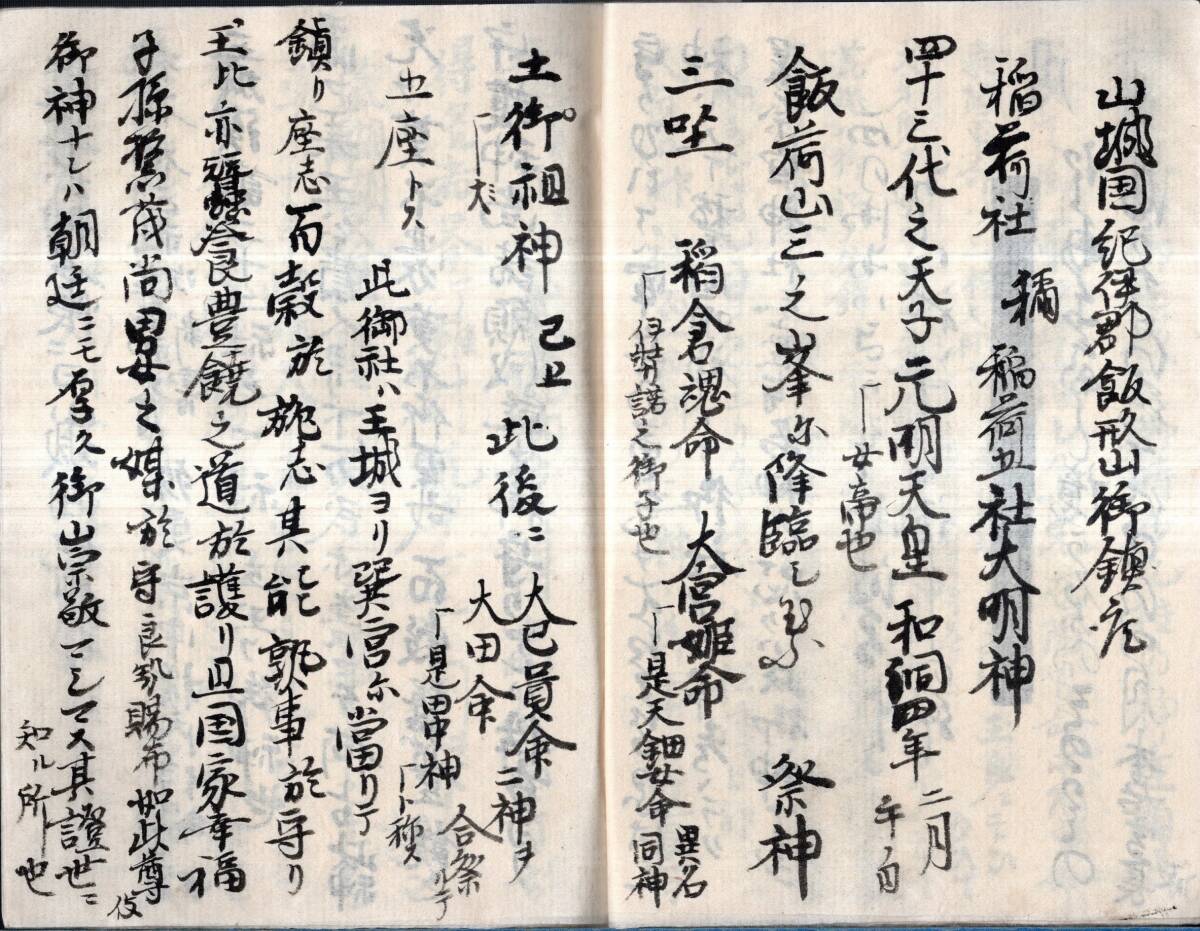 山城国紀伊郡飯形山御鎮座
稲荷社 稱 稲荷五社大明神
四十三代之天子元明天皇 和銅四年 二月午ノ日
「女帝也
飯荷山三之峯尓降臨之 祭神
三坐 稲倉魂命 大宮姫命
「伊弉諾之御子也 「是天鈿女命 異名同神
土御祖神 已上 此後ニ 大己貴命 二神ヲ
大田命
「是田中神 合祭
「ト称ス
五座トス 此御社ハ王城ヨリ巽宮尓當リテ
鎮リ座志百穀於施志其能熟事於守リ
王比亦蠶養豊饒之道於護リ且国家幸福
子孫茂尚男女之媒於守 賜布如此尊
御神ナレハ朝廷ニモ厚ク御崇敬マシマス其證世ニ
知ル所也